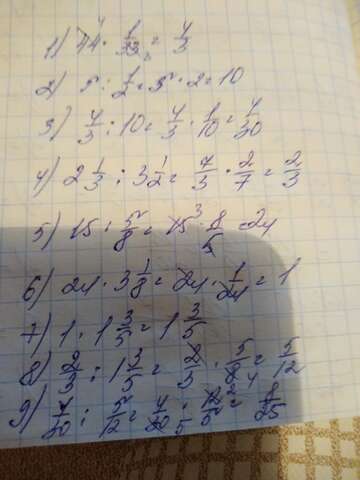 1) 44 · 1/33 = 4/3
2) 5 : 1/2 = 5 · 2 = 10
3) 4/3 : 10 = 4/3 · 1/10 = 4/30
4) 2 1/3 : 3 1/2 = 7/3 · 2/7 = 2/3
5) 15 : 5/8 = 15 3 · 8/5 = 24
6) 24 · 3 1/8 = 24 · 1/24 = 1
7) 1 · 1 3/5 = 1 3/5
8) 2/3 : 1 3/5 = 2/3 · 5/8 4 = 5/12
9) 4/30 : 5/12 = 4/30 5 · 12/5 2 = 8/25